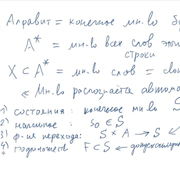 Алфавит = конечное мн-во
A* = мн-во всех слов
строки
X ⊂ A* = мн-во слов =
Мн-во распознаётся
1) состояния: конечное мн-во S
2) начальное: s₀ ∈ S
3) ф-ия перехода: S × A → S
4) F ⊂ S ←